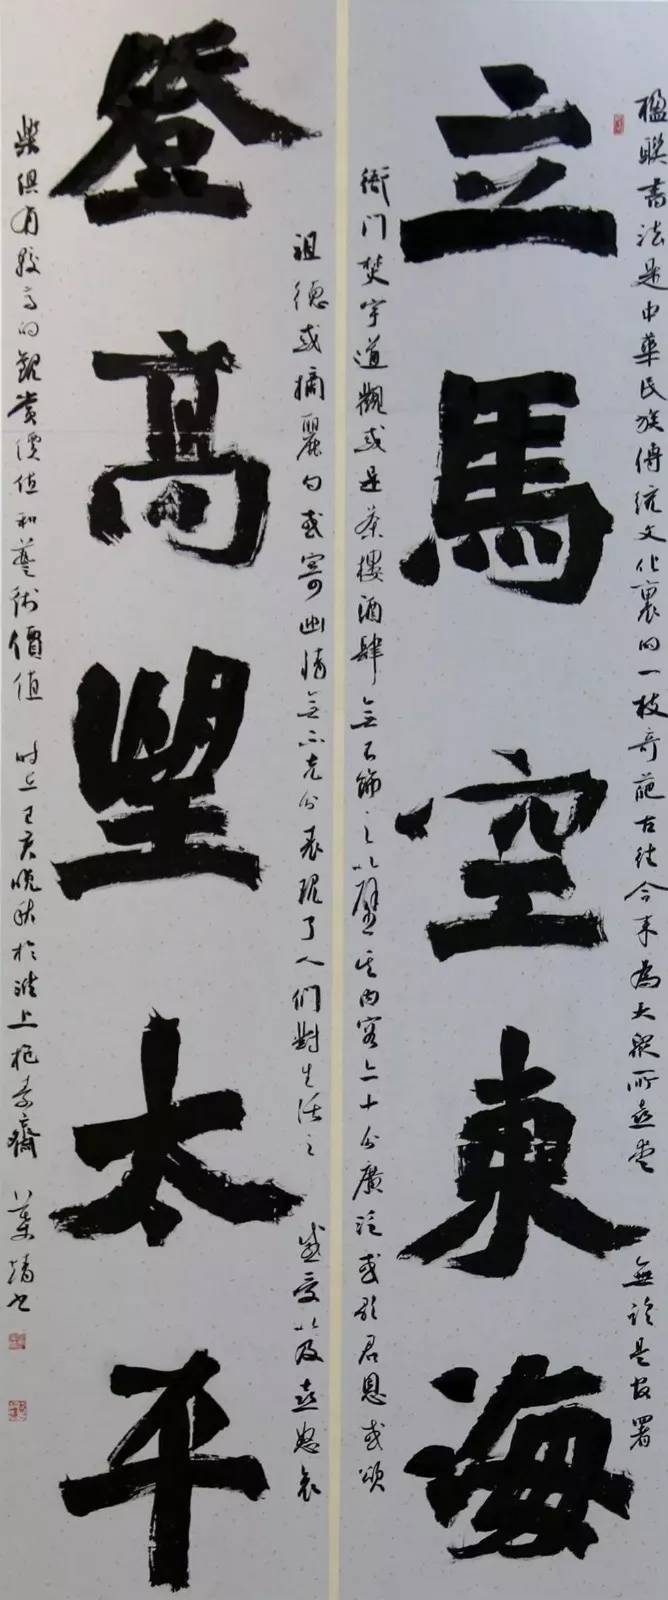 楹聯書法是中華民族傳統文化裏的一枝奇葩古往今来為大衆所喜愛 無論是官署
立馬空東海
衙门梵宇道觀或是茶樓酒肆無不飾之以壁其内容亦十分廣泛或歌君恩或頌
祖德或摘麗句或寄幽情無不充分表現了人們對生活之 感受以及喜怒哀
登高望太平
樂俱有較高的觀賞價值和藝術價值 时在己亥晚秋於淮上 齋 靖书